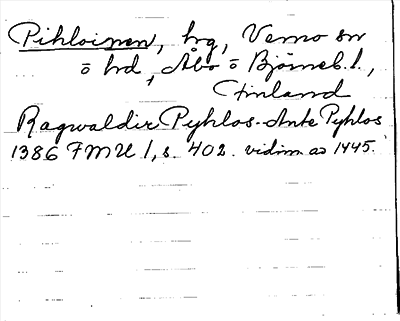 Pihloinen, hrg, Vemo sn
o hd, Åbo o Björneb. l.,
Finland
Ragwaldir Pyhlos- Ante Pyhlos
1386 FMU 1, s. 402. vidim. av 1445.